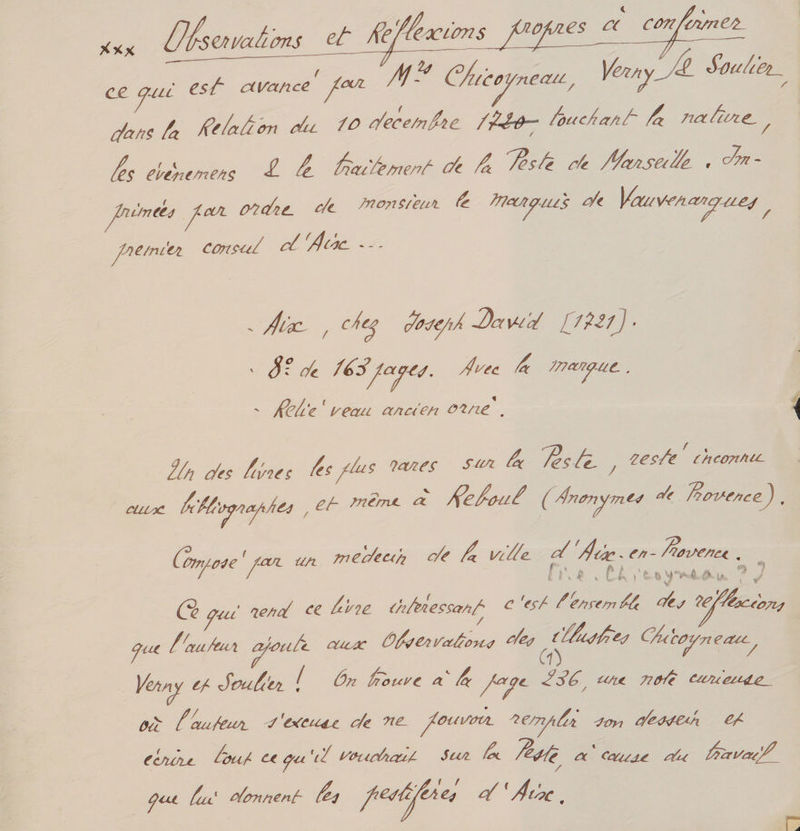 xxx Observations et Réflexions propres à confirmer
ce qui est avancé par Mrs Chicoyneau, Verny & Soulier,
dans la Relation du 10 decembre 1720 touchant la nature,
les évènemens & le traitement de la Peste de Marseille. Im-
primées par ordre de monsieur le marquis de Vauvenargues,
premier consul d'Aix ---
- Aix, chez Joseph David [1721].
- 8º de 163 pages. Avec la marque.
- Relié veau ancien orné.
Un des livres les plus rares sur la Peste, resté inconnu
aux bibliographes, et même à Reboul (Anonymes de Provence).
Composé par un médecin de la ville d'Aix-en-Provence.
[i.e. Chicoyneau?]
Ce qui rend ce livre intéressant, c'est l'ensemble des reflexions
que l'auteur ajoute aux Observations des illustres Chicoyneau,
(1)
Verny et Soulier! On trouve à la page 236, une note curieuse
où l'auteur s'excuse de ne pouvoir remplir son dessein et
écrire tout ce qu'il voudrait sur la Peste, à cause du travail
que lui donnent les pestiférés d'Aix.